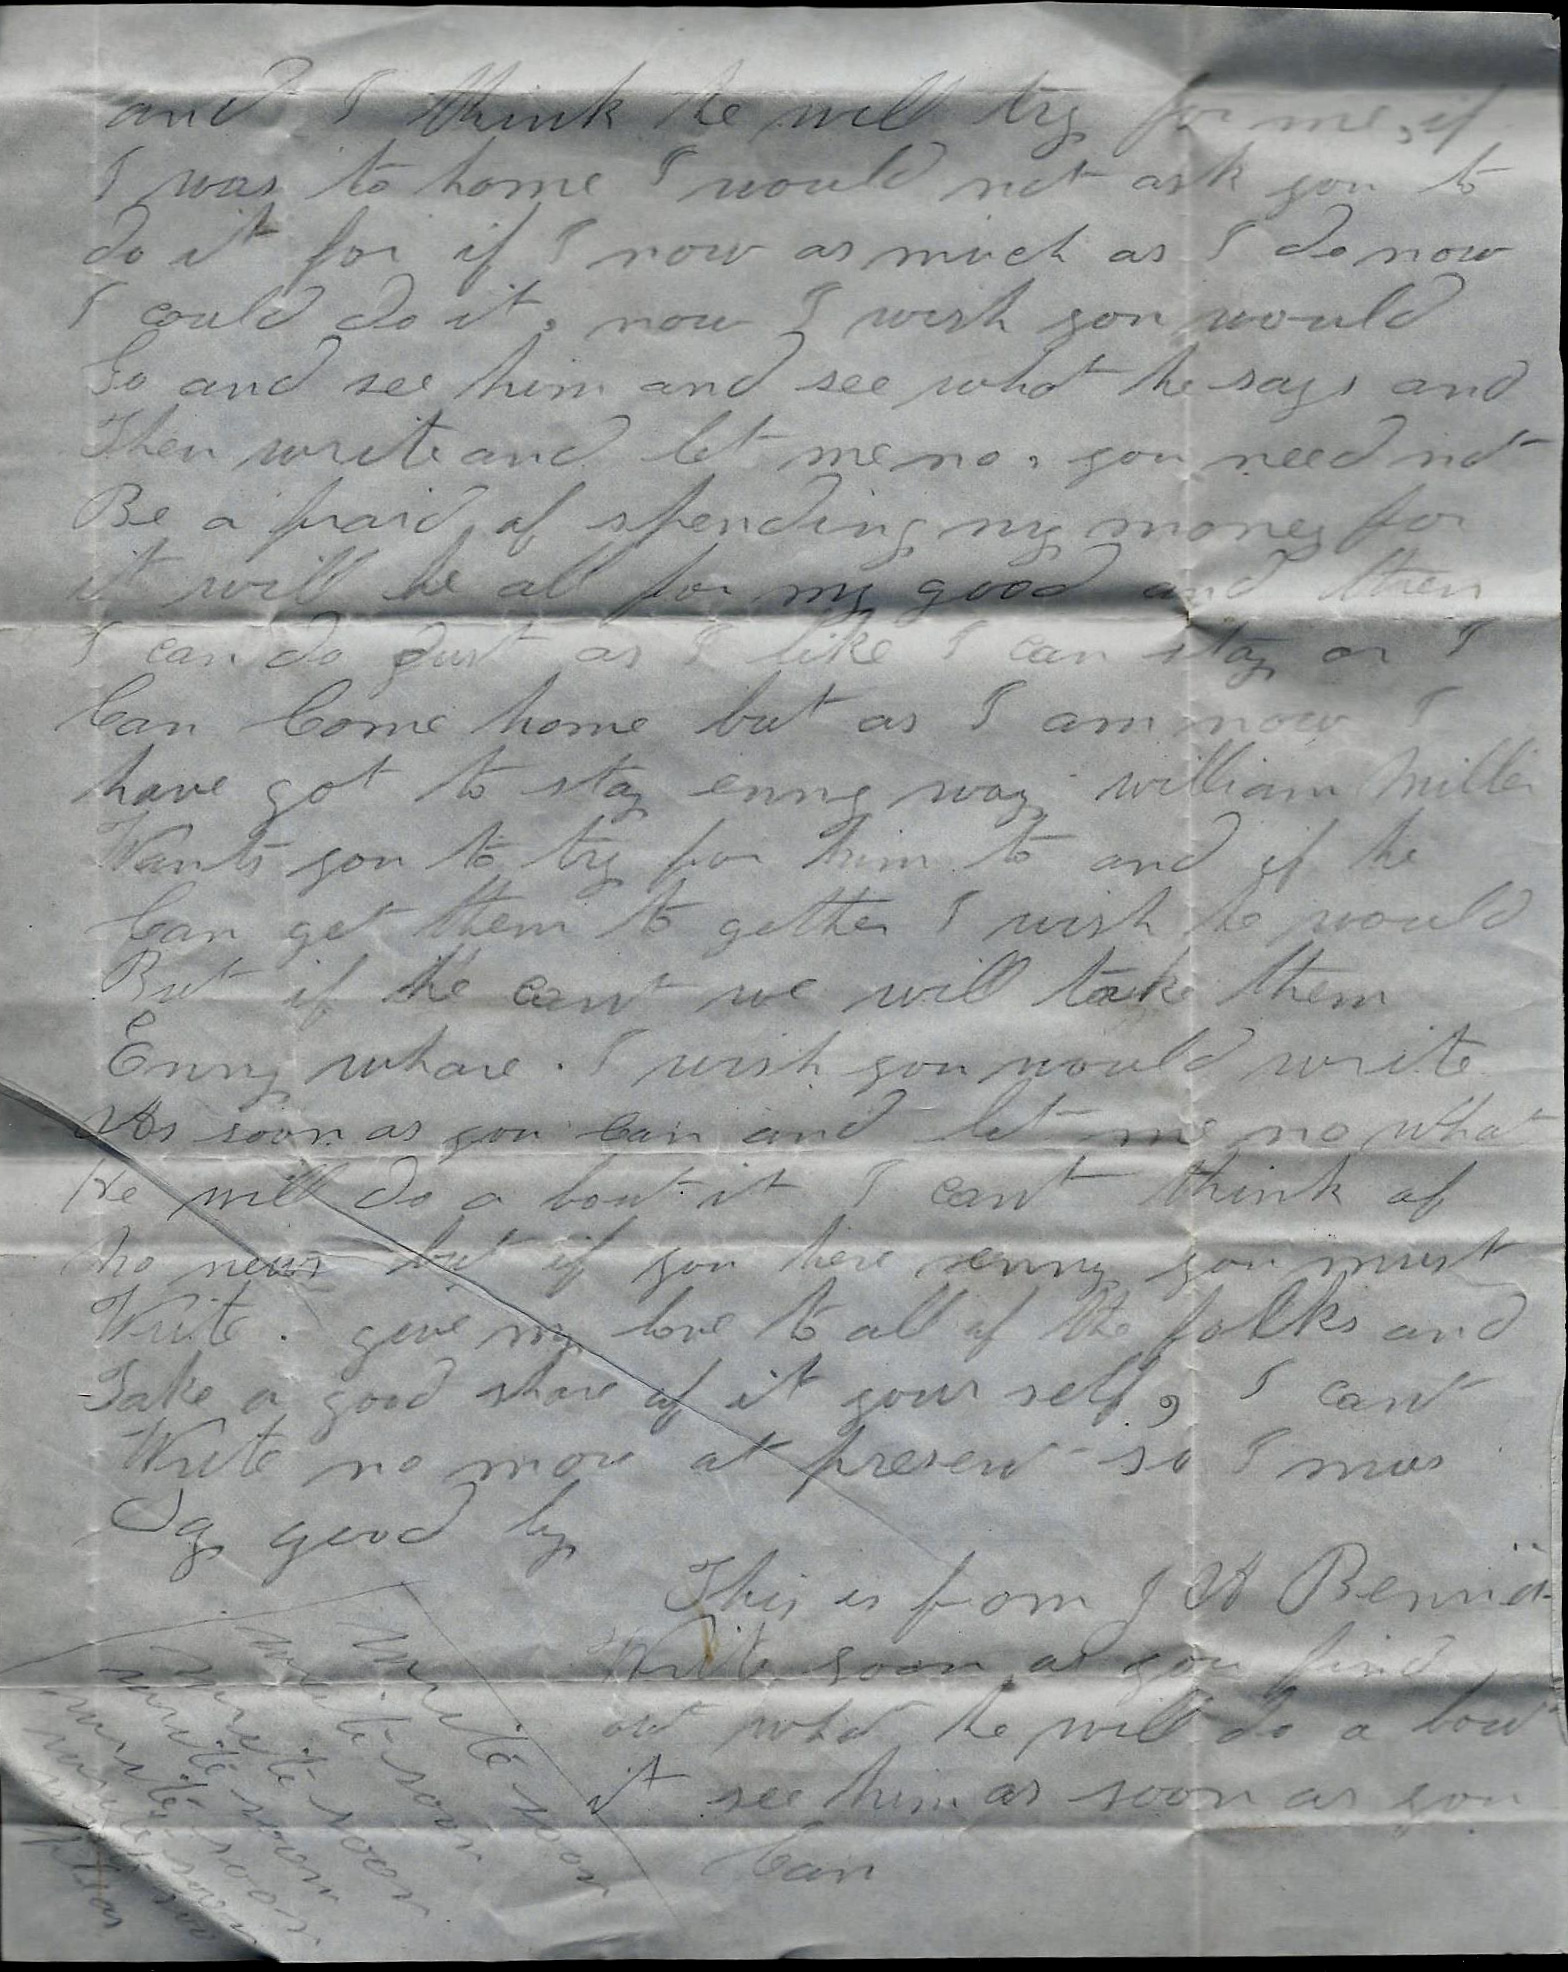 and I think he will try for me, if
I was to home I would not ask you to
do it for if I now as much as I do now
I could do it, now I wish you would
Go and see him and see what he says and
Then write and let me no, you need not
Be a fraid of spending my money for
it will be all for my good and then
I can do just as I like I can stay or I
Can Come home but as I am now I
have got to stay enny way william Miller
Wants you to try for him to and if he
Can get them to gether I wish he would
But if he cant we will take them
Enny whare. I wish you would write
As soon as you can and let me no what
He will do a bout it I cant think of
no news but if you here enny you must
Write. give my love to all of the folks and
Take a good share of it your self, I cant
Write no more at present so I mus
Say good by
This is from J H
Write soon as you find
out what he will do a bout
it see him as soon as you
Can
write soon
write soon
write soon
write soon
write soon
write soon